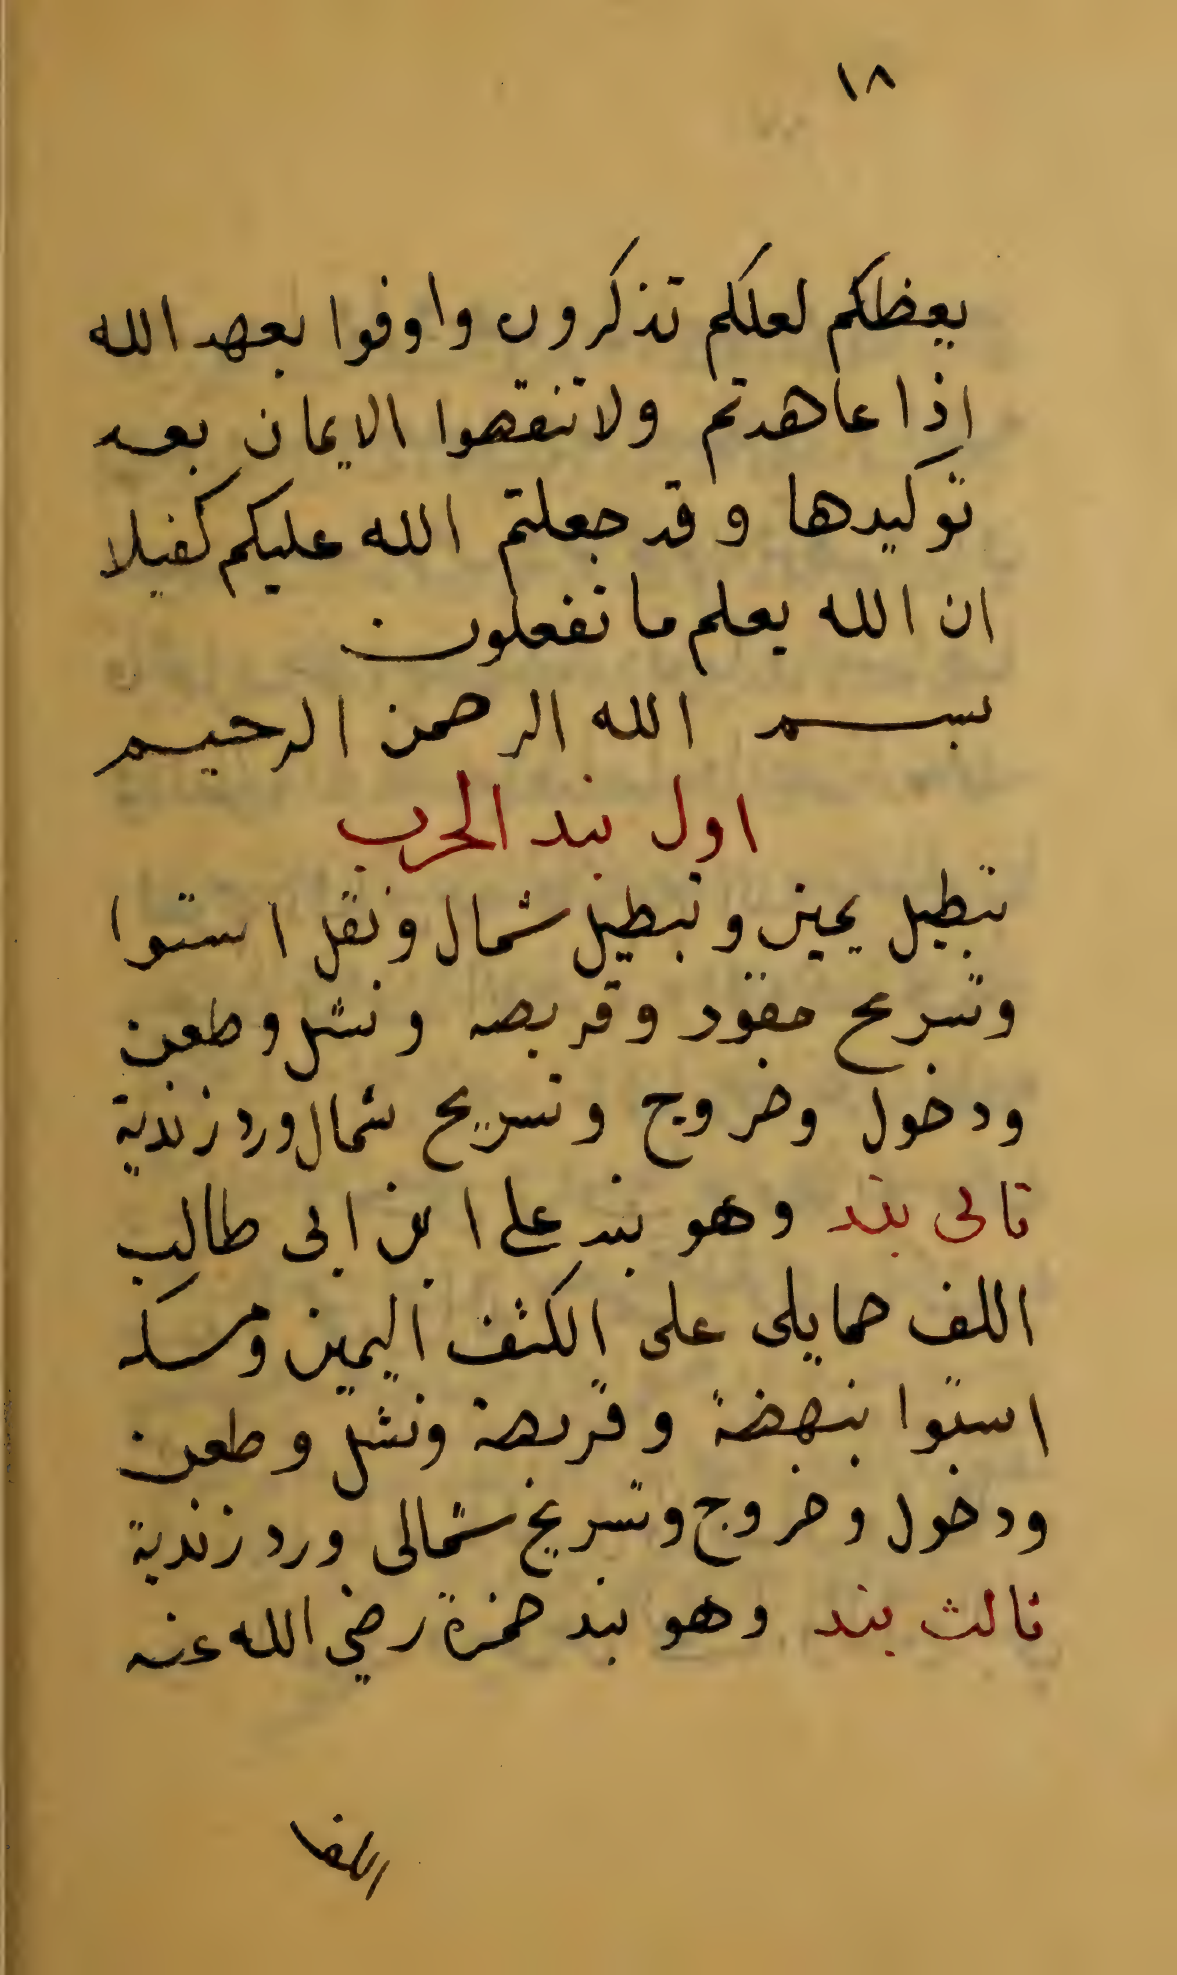 ١٨
يعظكم لعلكم تذكرون واوفوا بعهد الله
اذا عاهدتم ولا تنقهوا الايمان بعد
توكيدها وقد جعلتم الله عليكم كفيلا
ان الله يعلم ما تفعلون
بسم الله الرحمن الرحيم
اول بند الحرب
تبطيل يمين وتبطيل شمال ونقل استوا
وتسريح وقربصه ونشل وطعن
ودخول وخروج وتسريح شمال ورد زندية
تالى بند وهو بند على ابن ابى طالب
اللف حمايلى على الكتف اليمين ومسكه
استوا بنهضة وقربصة ونشل وطعن
ودخول وخروج وتسريح شمالى ورد زندية
تالت بند وهو بند حمزة رضي الله عنه
اللف